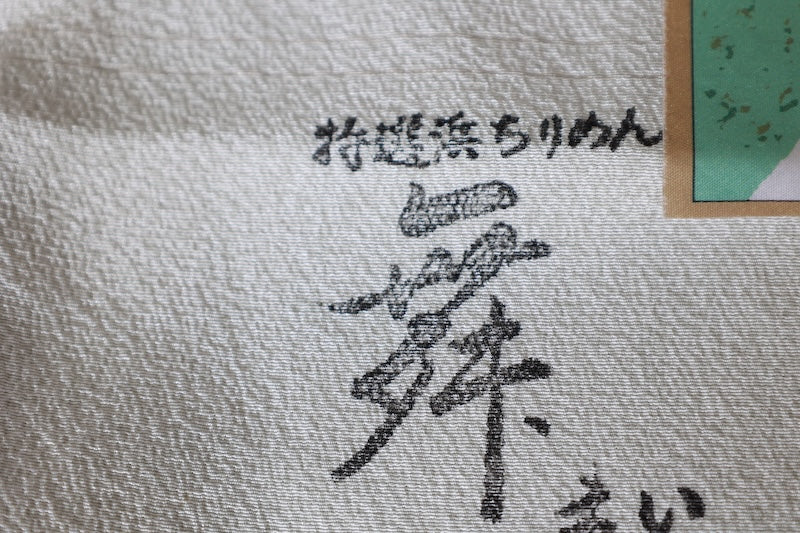 特選浜ちりめん
舞